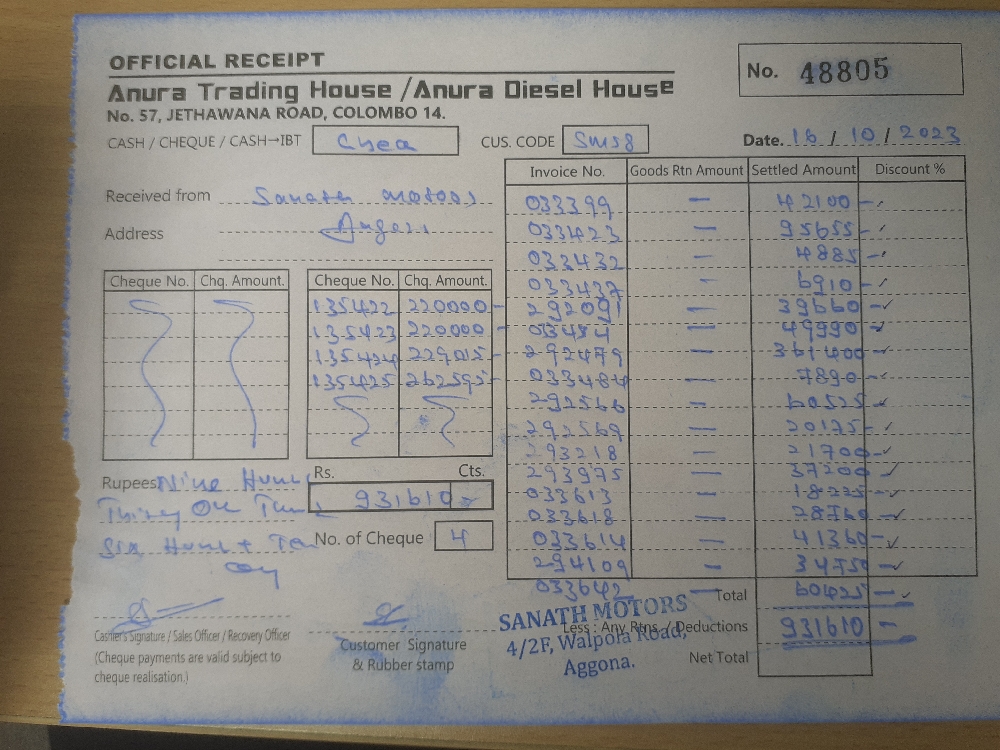 OFFICIAL RECEIPT
No. 48805
Anura Trading House /Anura Diesel House
No. 57, JETHAWANA ROAD, COLOMBO 14.
CASH / CHEQUE / CASH→IBT CUS. CODE SM58 Date. 16 / 10 / 2023
Invoice No. Goods Rtn Amount Settled Amount Discount %
Received from Sanath Motors
Address
033399 — 42100 -
033423 — 95655 -
033432 — 4885 -
033437 — 6910 -
292091 — 39660 -
— 49990 -
292479 — 361400 -
033484 — 7890 -
292566 — 60525 -
292569 — 20125 -
293218 — 21700 -
293975 — 37200
033613 — 18225 -
033618 — 28760 -
033614 — 41360 -
294109 — 34750 -
033642 — 60425 -
Cheque No. Chq. Amount. Cheque No. Chq. Amount.
135422 220000 -
135423 220000 -
135424 229015 -
135425 262595 -
Rupees Nine Hund
Thirty One
Six Hund + Ten
Rs. Cts.
931610
No. of Cheque 4
Total
931610 -
Less : Any Rtns / Deductions
Net Total
SANATH MOTORS
4/2F, Walpola Road,
Aggona.
Cashier's Signature / Sales Officer / Recovery Officer
(Cheque payments are valid subject to
cheque realisation.)
Customer Signature
& Rubber stamp